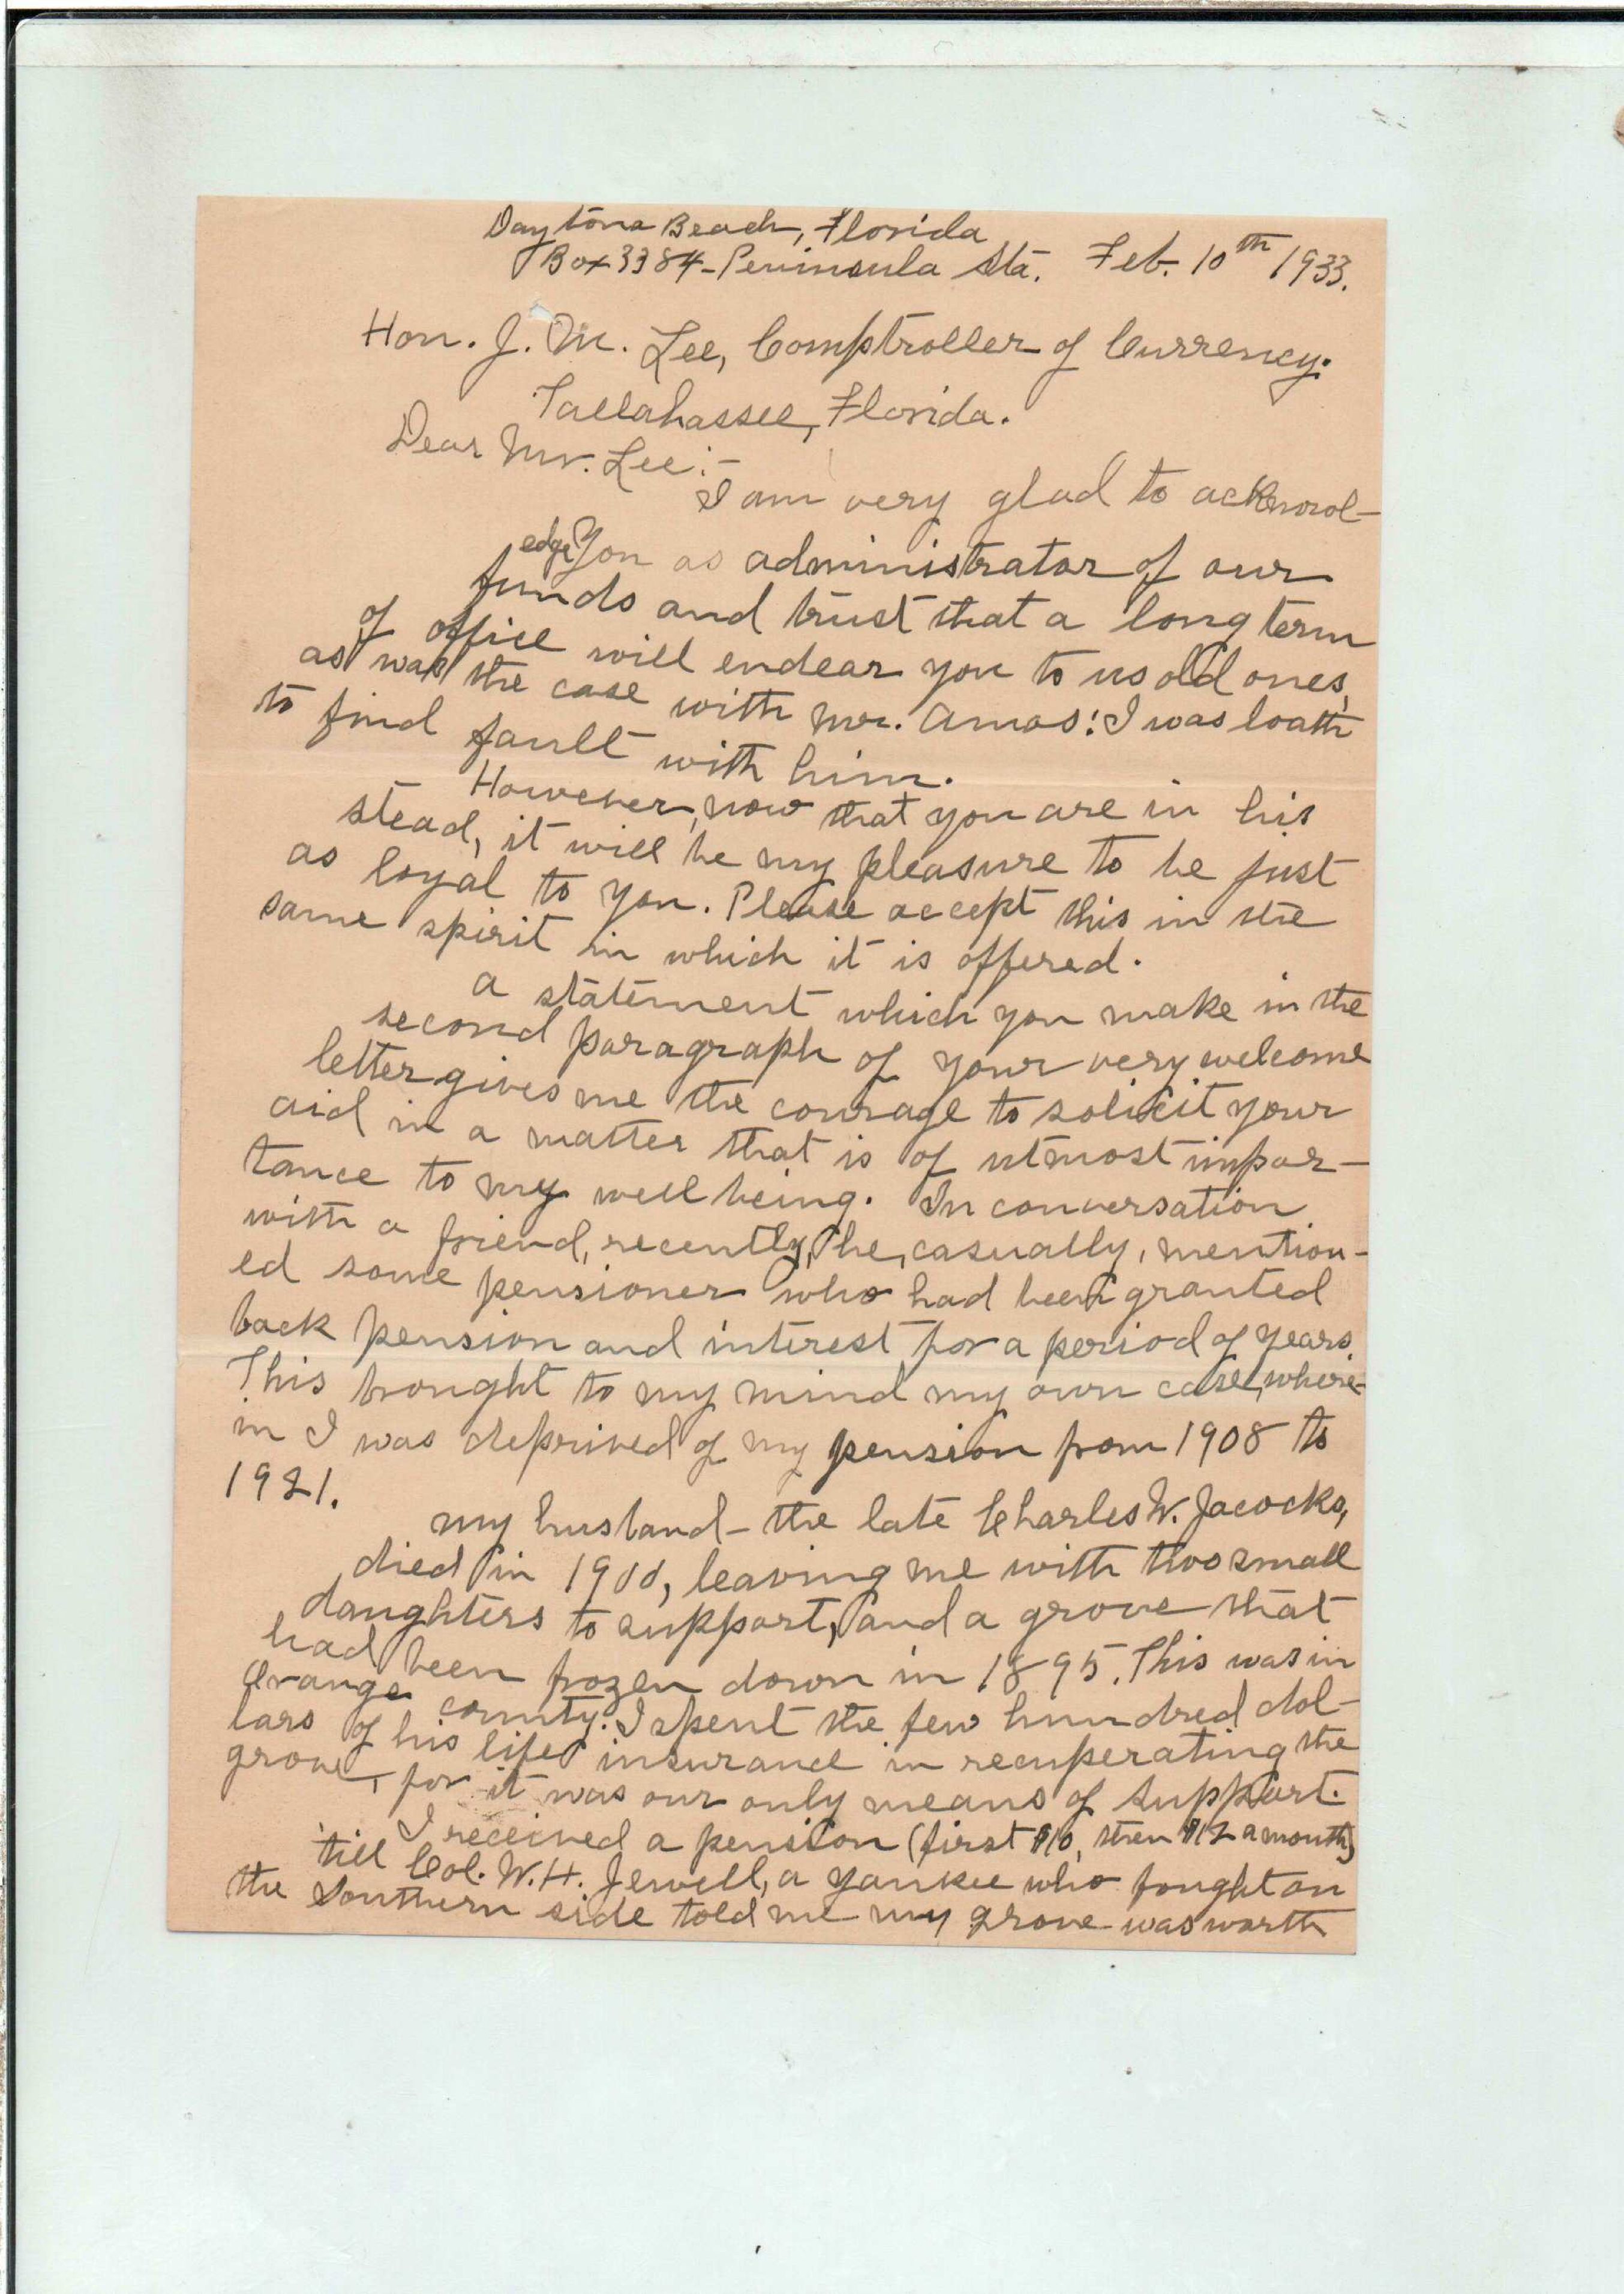 Daytona Beach, Florida
Box 3384 - Peninsula Sta. Feb. 10th 1933.
Hon. J. M. Lee, Comptroller of Currency.
Tallahassee, Florida.
Dear Mr. Lee:-
I am very glad to acknowl-
edge you as administrator of our
funds and trust that a long term
of office will endear you to us old ones,
as was the case with Mr. Amos: I was loath
to find fault with him.
However, now that you are in his
stead, it will be my pleasure to be just
as loyal to you. Please accept this in the
same spirit in which it is offered.
A statement which you make in the
second paragraph of your very welcome
letter gives me the courage to solicit your
aid in a matter that is of utmost impor-
tance to my well being. In conversation
with a friend, recently, he, casually, mention-
ed some pensioner who had been granted
back pension and interest for a period of years.
This brought to my mind my own case, where-
in I was deprived of my pension from 1908 to
1921.
My husband - the late Charles W. Jacocks,
died in, leaving me with two small
daughters to support, and a grove that
had been frozen down in 1895. This was in
Orange county. I spent the few hundred dol-
lars of his life insurance in recuperating the
grove, for it was our only means of support.
I received a pension (first $10, then $12 a month)
'till Col. W. H. Jewell, a yankee who fought on
the Southern side told me my grove was worth